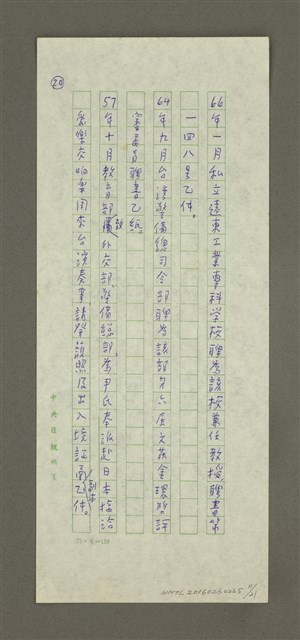 ⑳
66年一月私立遠東工業專科学校聘為該校兼任教授聘書第
一四八号乙件。
64年九月台湾警備總司令部聘為該部第六屆文藝金環獎評
審委員聘書乙紙。
57年十月教育部致外交部、警備總部、為尹氏奉派赴日本接洽
愛樂交响樂團來台演奏事請發護照及出入境証函副本乙件。
中央日報
25×
NMTL20160260225